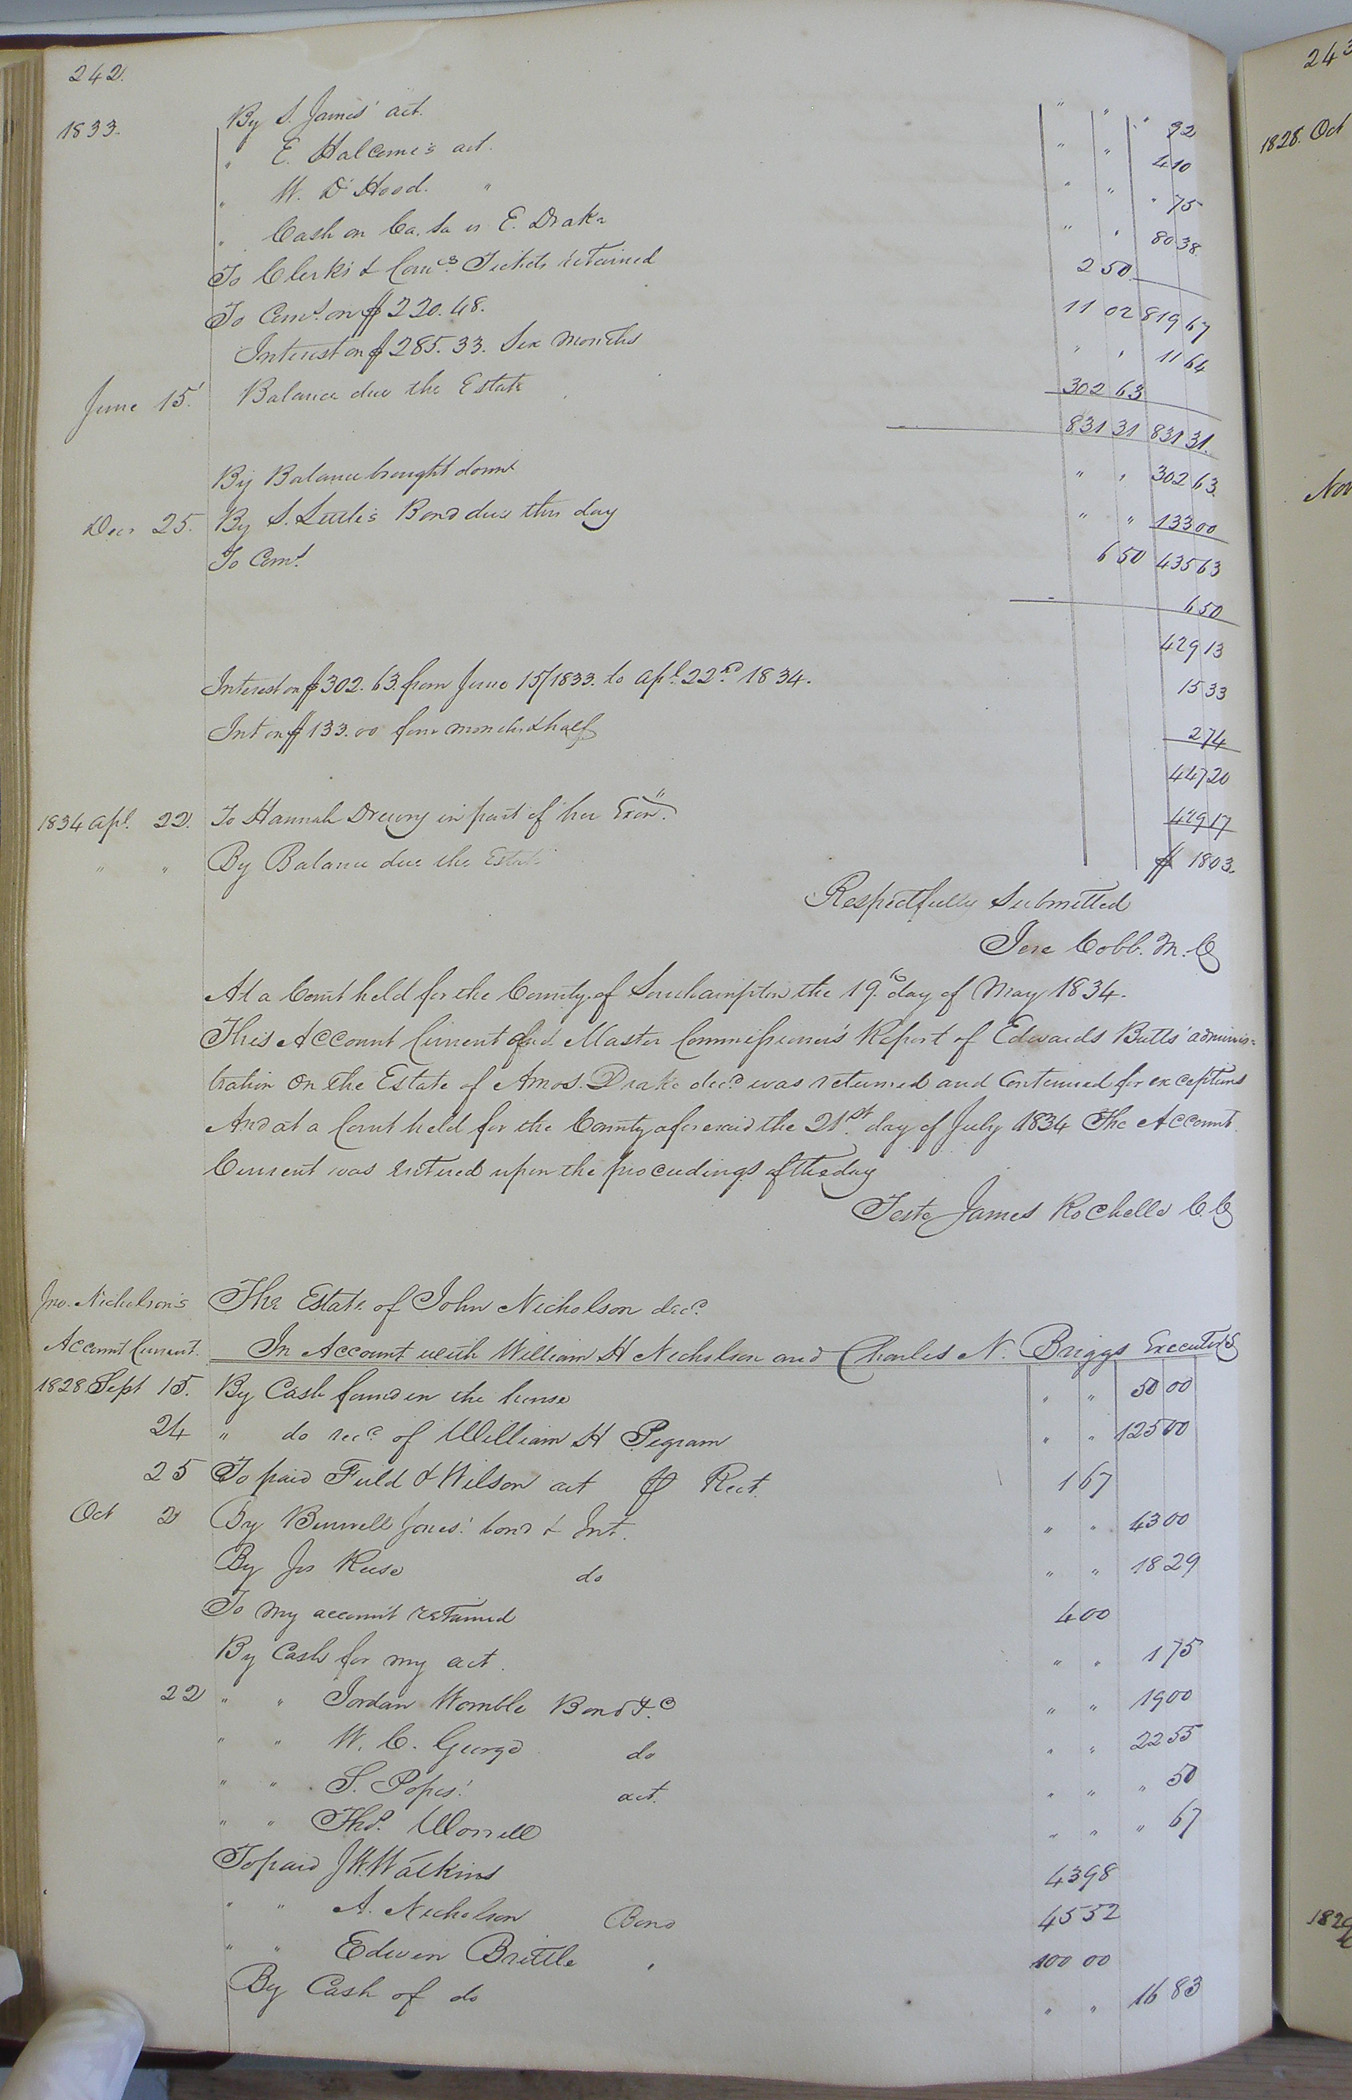 242.
1833. By S. James' act. " " " 92
" E. Halcome's act. " " 4 10
" W. D Hood. " " " " 75
" Cash on Ca. Sa vs E. Drake " " 80 38
To Clerk's & Com.rs Tickets retained 2 50
To Coms. on $220.48. 11 02 819 67
Interest on $285.33. Six months " " 11 64
June 15. Balance due the Estate 302 63
831 31 831 31.
By Balance brought down " " 302 63
Decr 25. By S. Little's Bond due this day " " 133 00
To Coms. 6 50 435 63
6 50
429 13
Interest on $302.63. from June 15/1833. to Apl. 22nd 1834. 15 33
Int on $133.00 four months & half 2 74
447 20
1834 Apl. 22. To Hannah Drewry in part of her Exon. 429 17
" " By Balance due the Estate $ 18 03.
Respectfully Submitted
Jere Cobb. M. C
At a Court held for the County of Southampton the 19th day of May 1834.
This Account Current and Master Commissioner's Report of Edwards Butts' adminis=
tration on the Estate of Amos. Drake decd was returned and Continued for exceptions
And at a Court held for the County aforesaid the 21st day of July 1834 The Account
Current was entered upon the proceedings of the day
Teste James Rochelle C. C
Jno. Nicholson's The Estate of John Nicholson decd.
Account Current. In Account with William H Nicholson and Charles N. Briggs Executors
1828 Sept 15. By Cash found in the house " " 50 00
24 " do recd. of William H Pegram " " 125 00
25 To paid Field & Wilson act Rect. 1 67
Oct 2 By Burwell Jones' bond & Int. " " 43 00
By Jos Reese do " " 18 29
To my account retained 4 00
By Cash for my act. " " 1 75
22 " " Jordan Womble Bond &c " " 19 00
" " W. C. George do " " 22 55
" " S. Popes' act. " " " 50
" " Thos. Worrell " " " 67
To paid J W. Watkins 43 98
" " A. Nicholson Bond 45 52
" " Edwin Brittle " 100 00
By Cash of do " " 16 83
243
1828. Oct
Nov